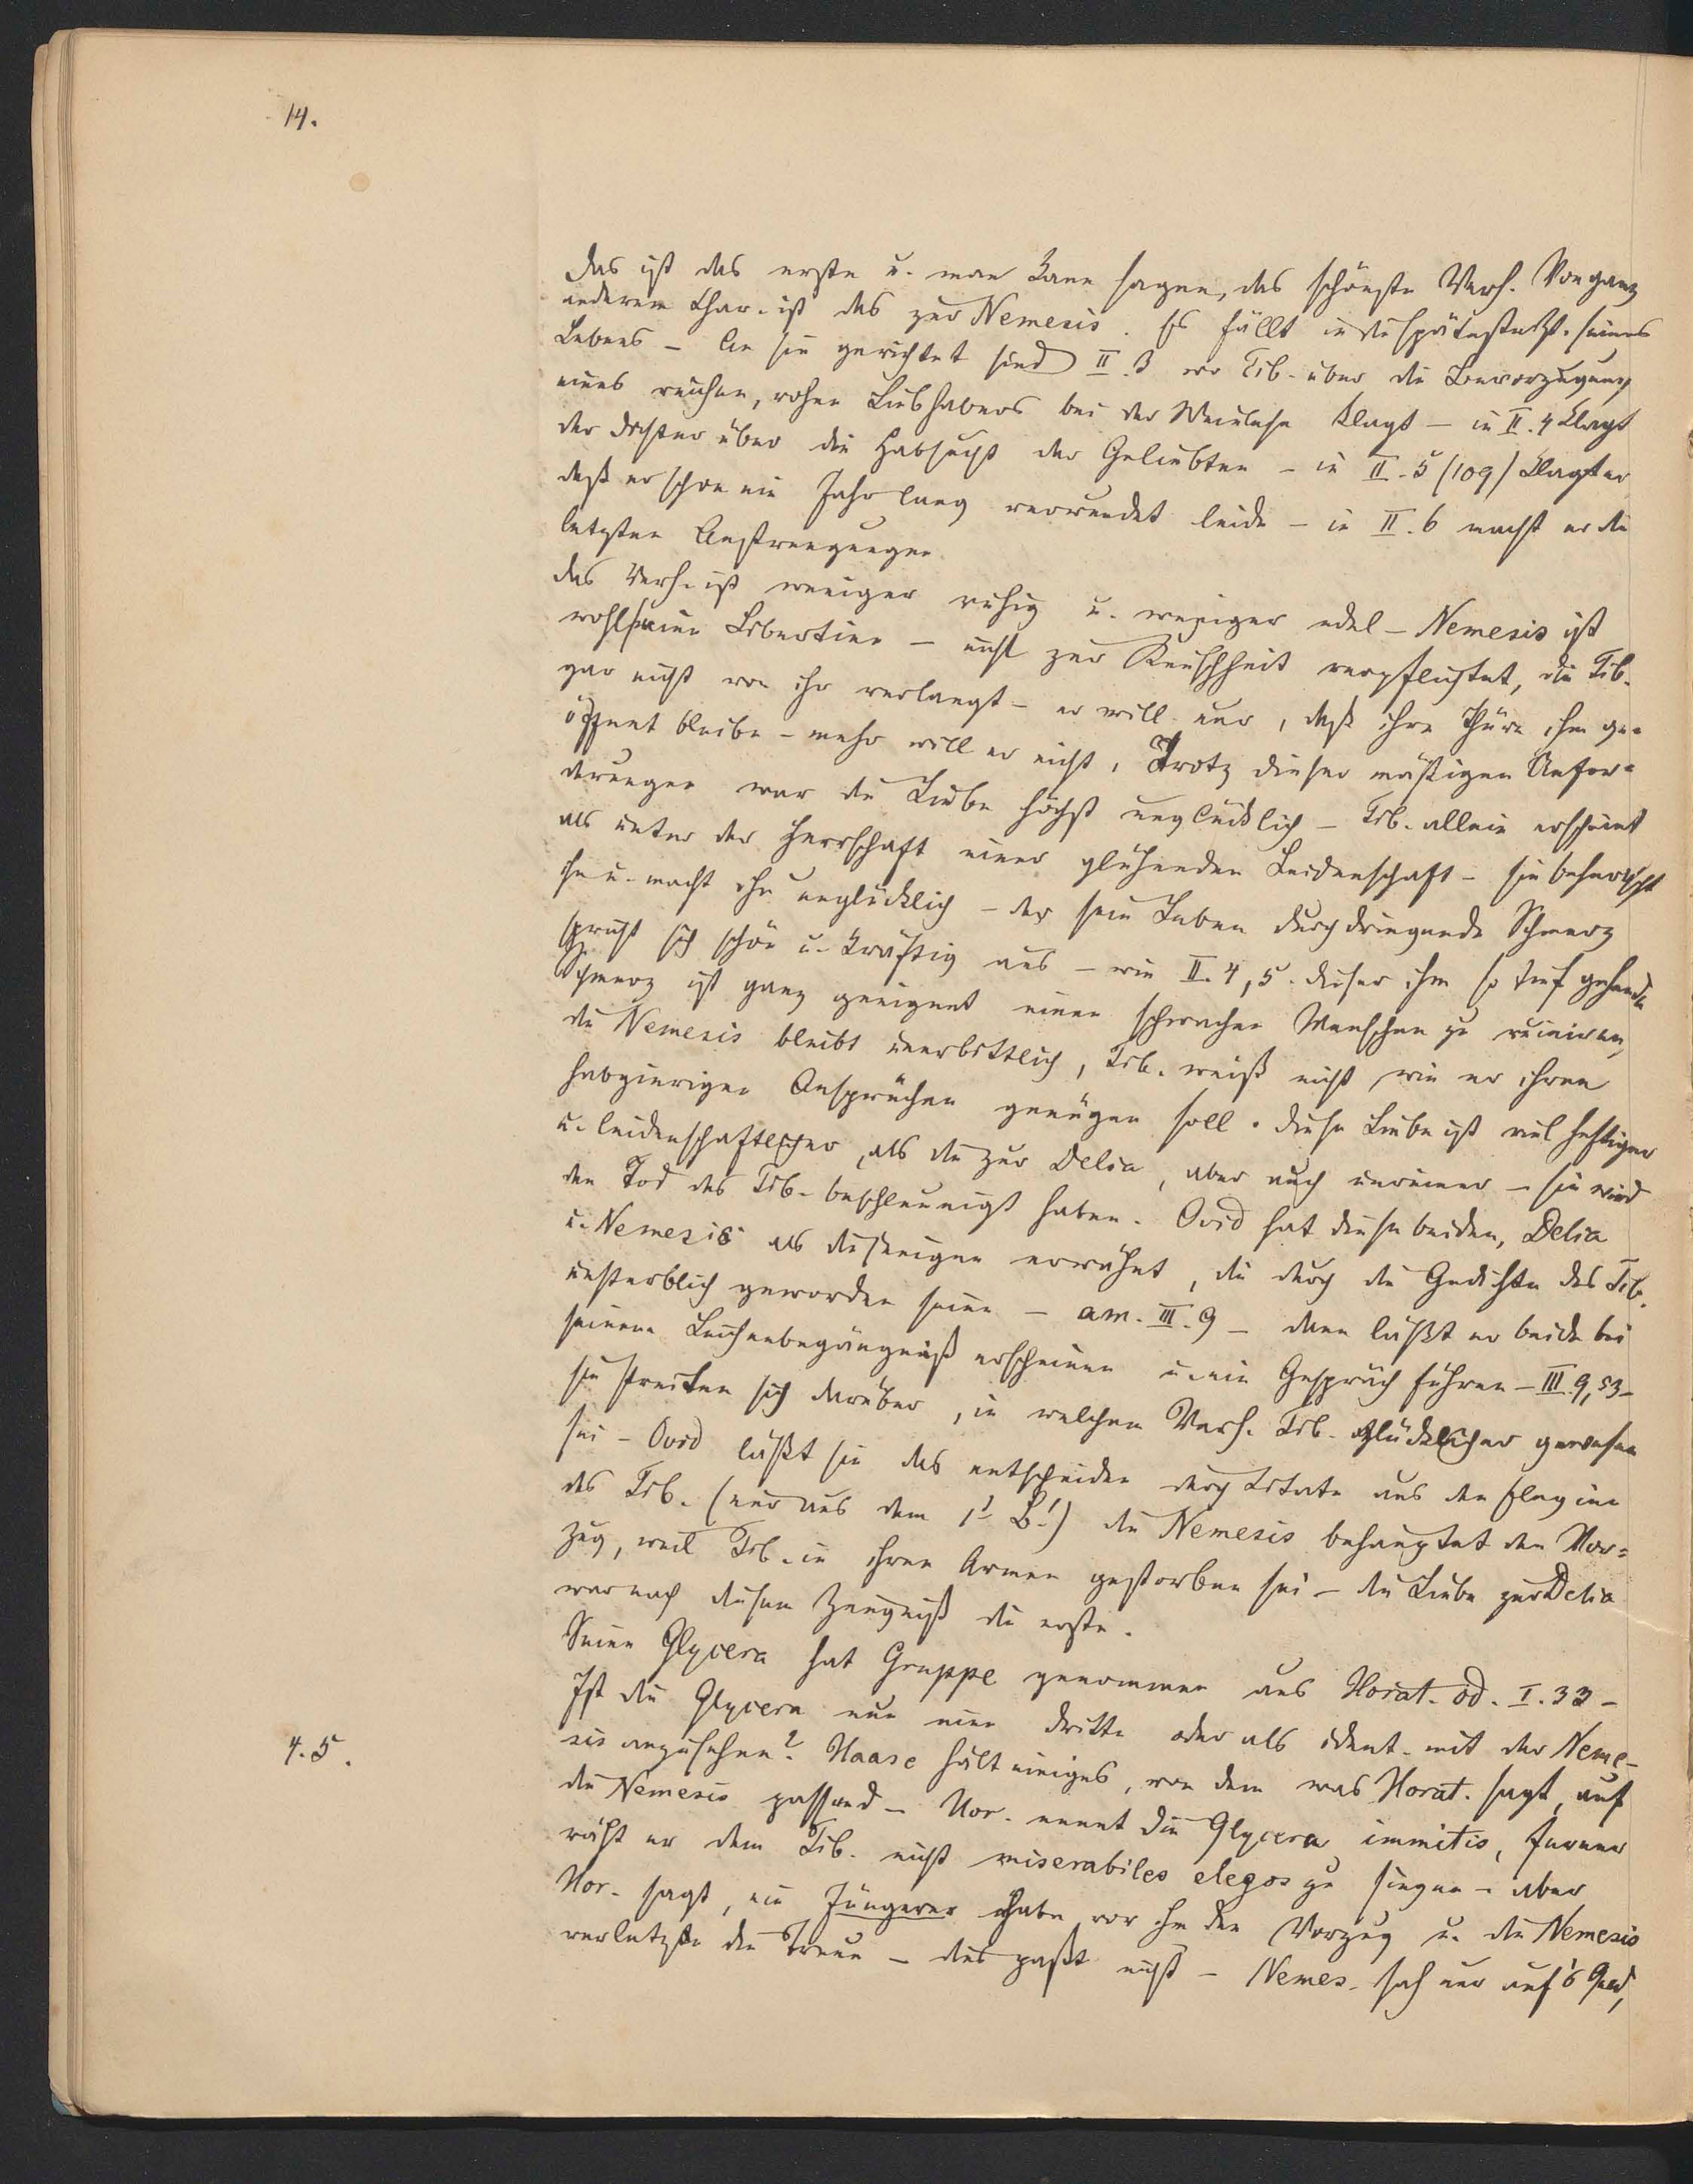 14.
Das ist das erste u. man kann sagen, das schönste Verh. Von ganz
anderem Char. ist das zur Nemesis. Es fällt in die späteste Zt. seines
Lebens – An sie gerichtet sind II. 3 wo Tib. über die Bevorzugung
eines reichen, rohen Liebhabers bei der Weinlese klagt – in II. 4 klagt
der Dichter über die Habsucht der Geliebten – in II. 5 (109) klagt er
daß er schon ein Jahr lang verwundet leide – in II. 6 macht er die
letzten Anstrengungen.
Das Verh. ist weniger ruhig u. weniger edel – Nemesis ist
wohl eine Libertine – nicht zur Keuschheit verpflichtet, die Tib.
gar nicht von ihr verlangt – er will nur, daß ihre Thüre ihm ge=
öffnet bleibe – mehr will er nicht. Trotz dieser mäßigen Anfor=
derungen war die Liebe höchst unglücklich – Tib. allein erscheint
als unter der Herrschaft einer glühenden Leidenschaft – sie beherrscht
ihn u. macht ihn unglücklich – der sein Leben durchdringende Schmerz
spricht sich schön u. kräftig aus – wie II. 4, 5. Dieser ihm so tief gehende
Schmerz ist ganz geeignet einen schwachen Menschen zu ruiniren,
die Nemesis bleibt unerbittlich, Tib. weiß nicht, wie er ihren
habgierigen Ansprüchen genügen soll. Diese Liebe ist viel heftiger
u. leidenschaftlicher, als die zur Delia, aber auch unreiner – sie wird
den Tod des Tib. beschleunigt haben. Ovid hat diese beiden, Delia
u. Nemesis als diejenigen erwähnt, die durch die Gedichte des Tib.
unsterblich geworden seien – am. III. 9 – dann läßt er beide bei
seinem Leichenbegängniß erscheinen u. ein Gespräch führen – III. 9, 53 –
sie streiten sich darüber, in welchem Verh. Tib. glücklicher gewesen
sei – Ovid läßt sie das entscheiden durch Citate aus den Elegien
des Tib. (nur aus dem 1t B.!) die Nemesis behauptet den Vor=
zug, weil Tib. in ihren Armen gestorben sei – die Liebe zur Delia
war nach diesem Zeugniß die erste.
Seine Glycera hat Gruppe genommen aus Horat. od. I. 33 –
Ist die Glycera nun eine dritte oder als ident. mit der Neme-
4. 5.
sis anzusehen? Haase hält einiges, von dem was Horat. sagt, auf
die Nemesis passend – Hor. nennt die Glycera immitis, ferner
räth er dem Tib. nicht miserabiles elegos zu singen – aber
Hor. sagt, ein Jüngerer habe vor ihm den Vorzug u. die Nemesis
verletzte die Treue – dies paßt nicht – Nemes. sah nur auf's Geld,